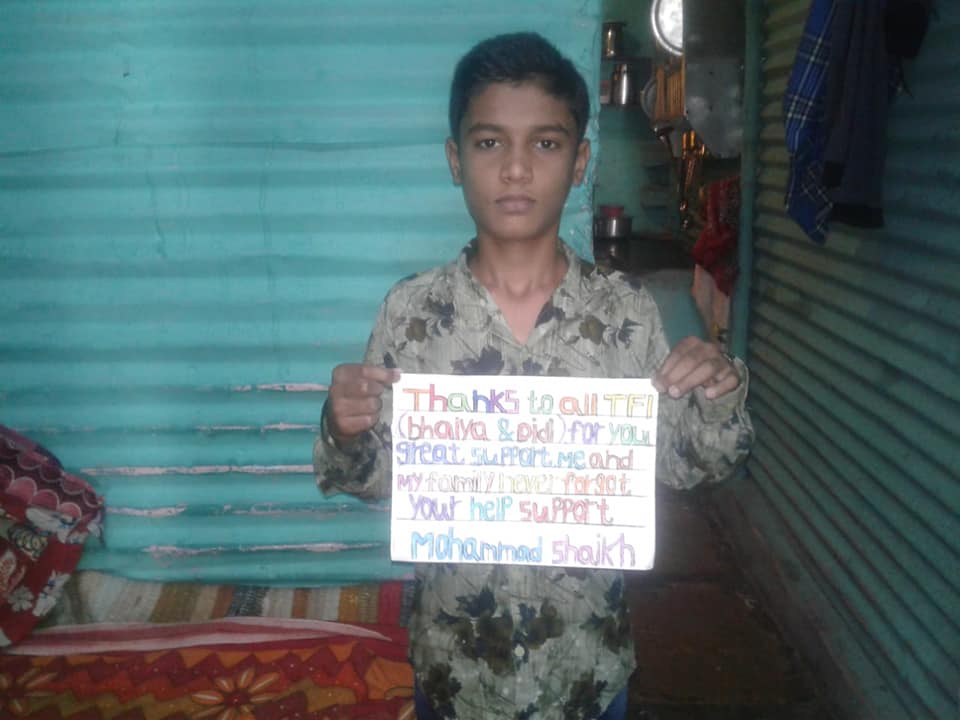 Thanks to all TFI
(bhaiya & Didi) for your
great support. Me and
My family never forgot
your help support
Mohammad Shaikh